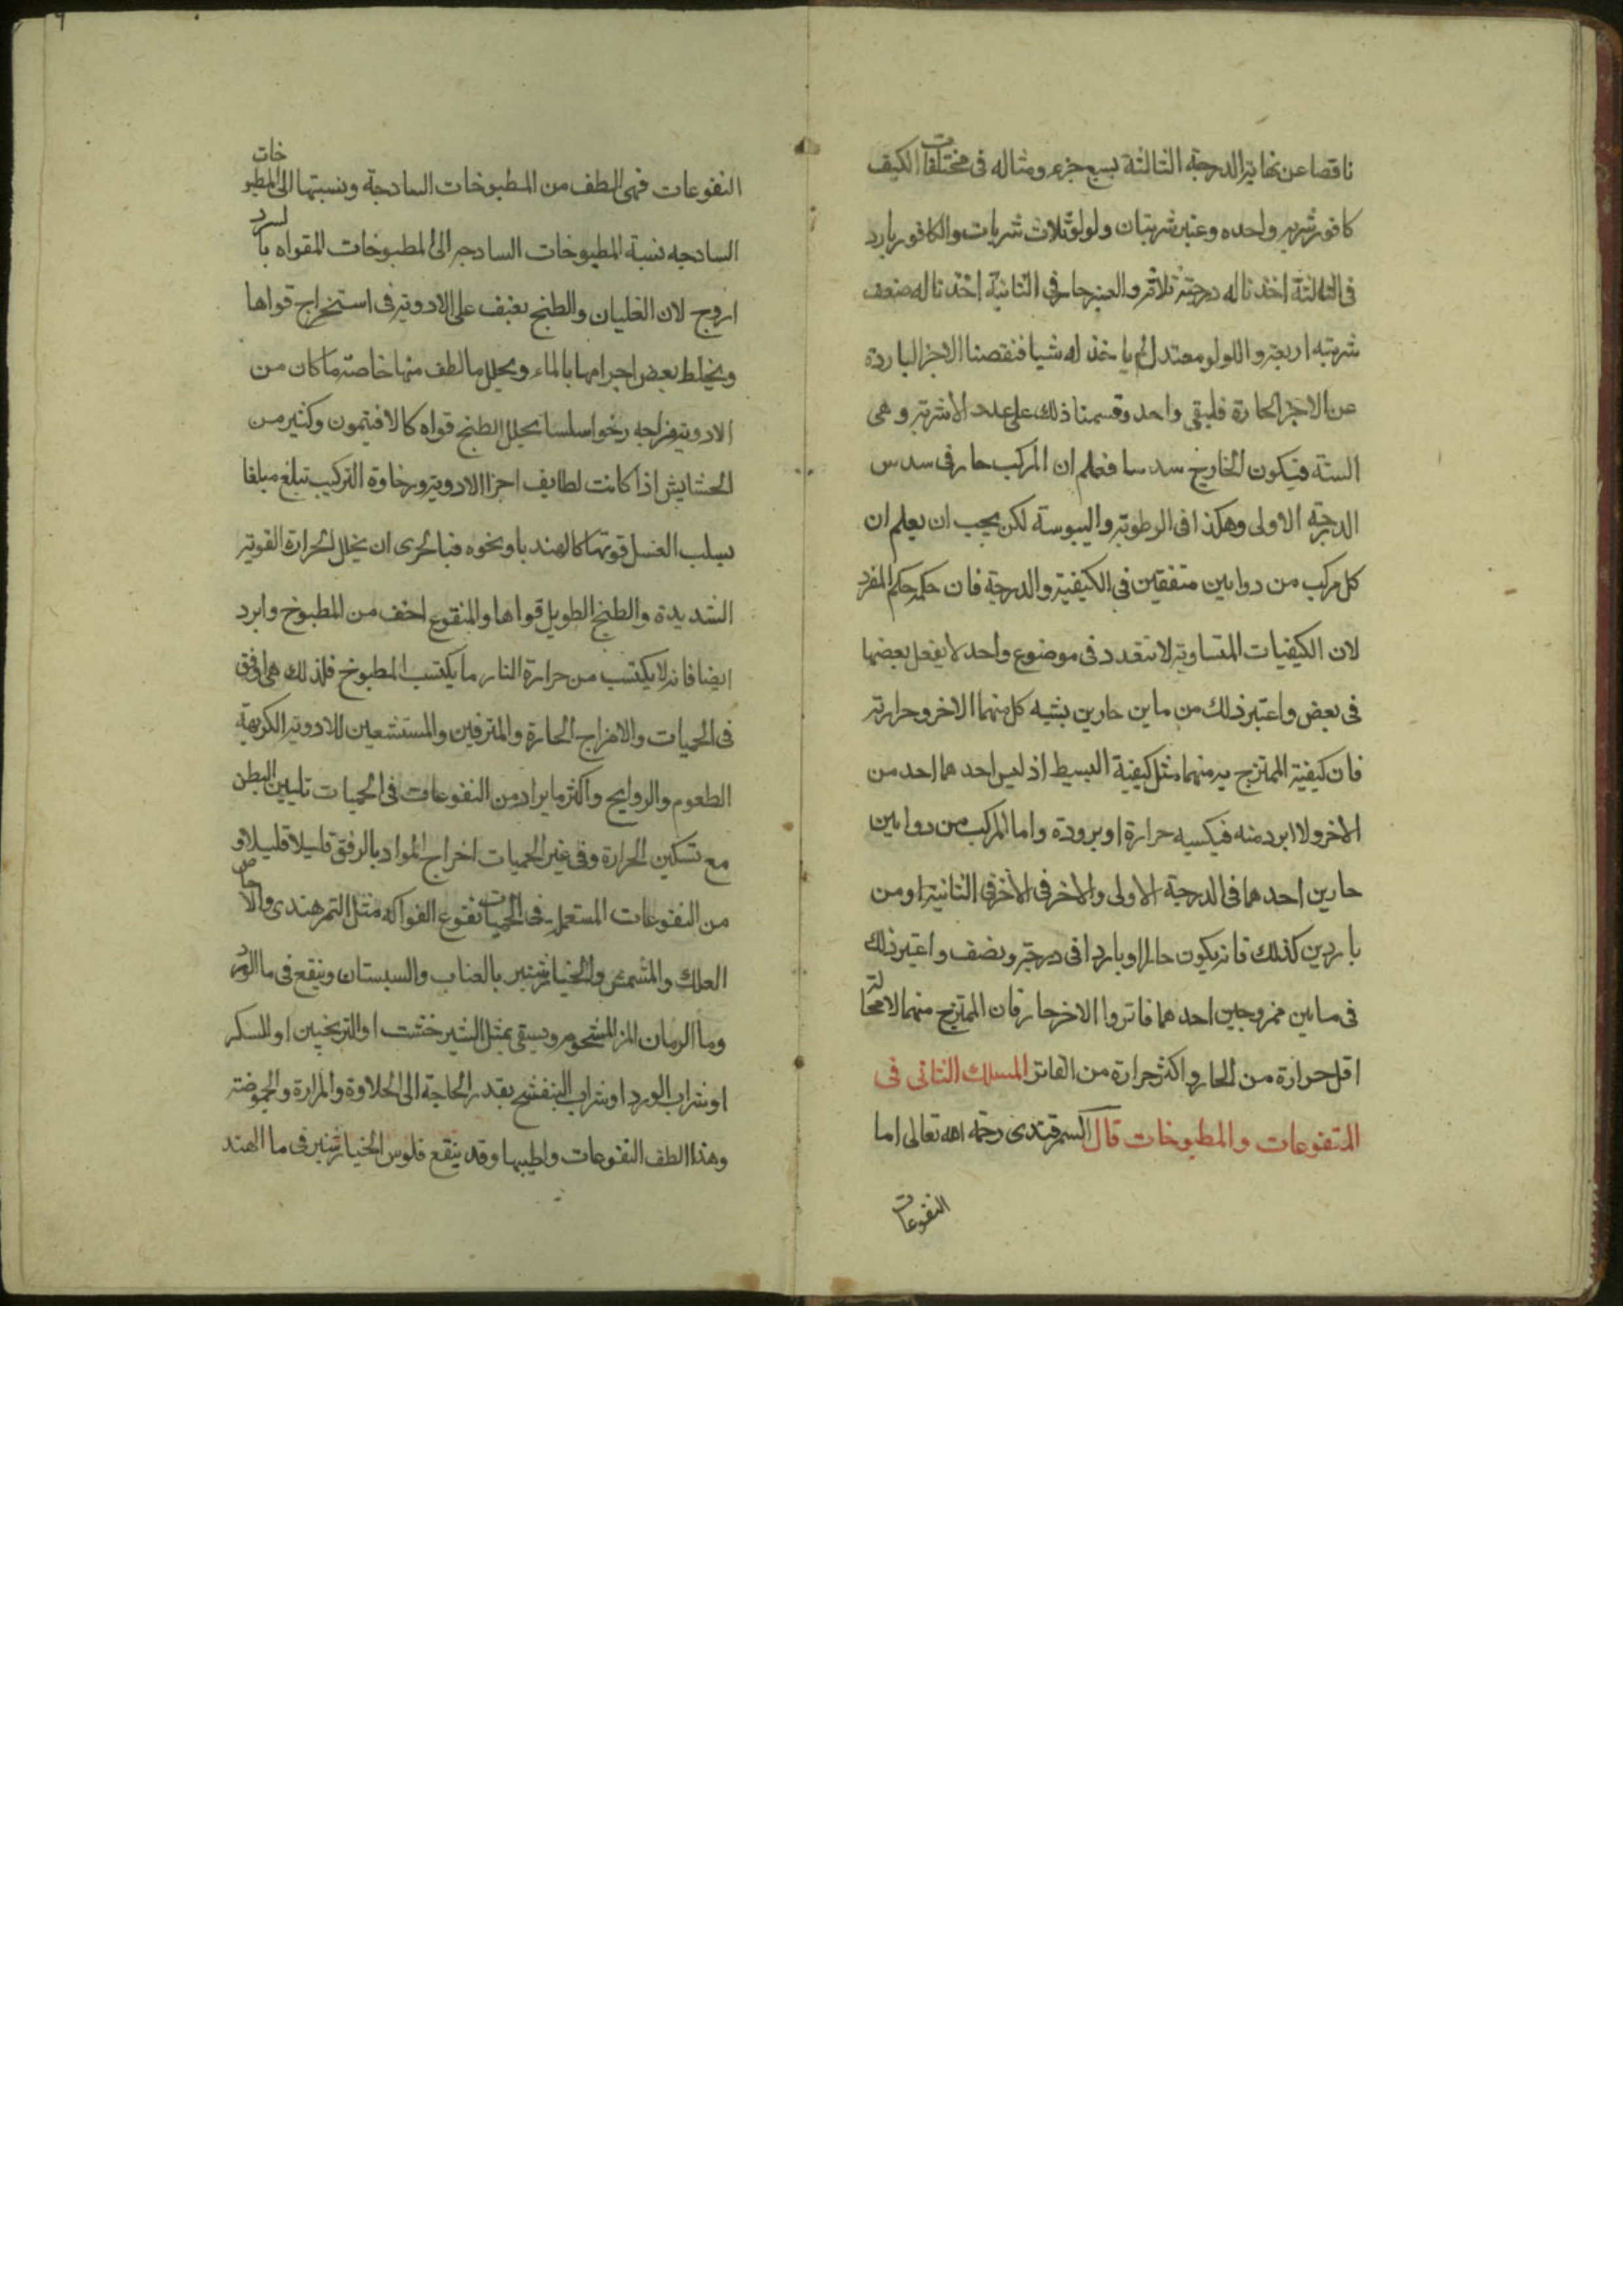 ناقصا عن نهاية الدرجة الثالثة بسبع جزء ومثاله فى مختلفات الكيف
كافور شربه واحده وعنبر شربتان ولولو ثلاث شربات والكافور بارد
فى الثالثة اخذنا له درجته ثلاثة والعنبر حار فى الثانية اخذنا له ضعف
شربته اربعة واللولو معتدل لم ياخذ له شيا فنقصنا الاجزا الباردة
عن الاجزا الحارة فليبقى واحد وقسمنا ذلك على عدد الاشربة وهى
الستة فيكون الخارج سدسا فعلم ان المركب حار فى سدس
الدرجة الاولى وهكذا فى الرطوبة واليبوسة لكن يجب ان يعلم ان
كل مركب من دوايين متفقين فى الكيفية والدرجة فان حكمه حكم المفرد
لان الكيفيات المتساوية لا تتعدد فى موضوع واحد لا يفعل بعضها
فى بعض واعتبر ذلك من ماين حارين يشبه كل منهما الاخر وحرارته
فان كيفية الممتزج به منهما مثل كيفية البسيط اذ ليس احدهما احد من
الاخر ولا ابرد منه فيكسبه حرارة او برودة واما المركب من دوايين
حارين احدهما فى الدرجة الاولى والاخر فى الاخر فى الثانية او من
باردين كذلك فانه يكون حارا او باردا فى درجة ونصف واعتبر ذلك
فى ماين ممزوجين احدهما فاتر والاخر حار فان الممتزج منهما لا محالة
اقل حرارة من الحار واكثر حرارة من الفاتر المسلك الثانى فى
المنقوعات والمطبوخات قال السمرقندى رحمه الله تعالى اما
النقوعات
النقوعات فهى الطف من المطبوخات الساذجة ونسبتها الى المطبوخات
الساذجه نسبة المطبوخات الساذجه الى المطبوخات المقواه
لان الغليان والطبخ يعنف على الادوية فى استخراج قواها
ويختلط بعض اجرامها بالماء ويحلل ما لطف منها خاصة ما كان من
الادوية مزاجه رخوا سلسا يحلل الطبخ قواه كالافتيمون وكثير من
الحشايش اذا كانت لطايف اجزا الادوية ورخاوة التركيب تبلغ مبلغا
يسلب الغسل قوتها كالهندبا ونحوه فبالحرى ان يحلل الحرارة القوية
الشديدة والطبخ الطويل قواها والمنقوع اخف من المطبوخ وابرد
ايضا فانه لا يكتسب من حرارة النار ما يكتسب المطبوخ فلذلك هى اوفق
فى الحميات والامزاج الحارة والمترفين والمستشعين للادوية الكريهة
الطعوم والروايح واكثر ما يراد من النقوعات فى الحميات تليين البطن
مع تسكين الحرارة وفى غير الحميات اخراج المواد بالرفق قليلا قليلا و
من النقوعات المستعملة فى الحميات نقوع الفواكه مثل التمر هندى والاجاص
العلك والمشمش والخيارشنبر بالعناب والسبستان وينقع فى ما الورد
وما الرمان المز المشحوم ويسقى بمثل الشيرخشت او الترنجبين او السكر
او شراب الورد او شراب البنفسج بقدر الحاجة الى الحلاوة والمرارة والحموضة
وهذا الطف النقوعات واطيبها وقد ينقع فلوس الخيارشنبر فى ما الهند